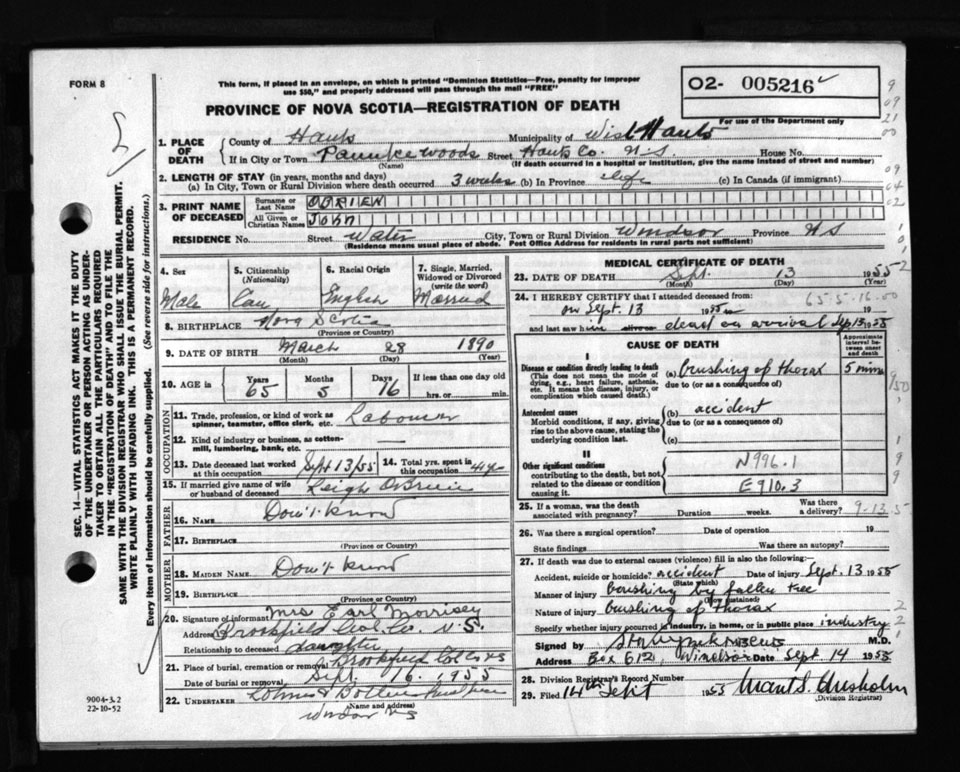 FORM 8
This form, if placed in an envelope, on which is printed "Dominion Statistics—Free, penalty for improper
use $50," and properly addressed will pass through the mail "FREE"
PROVINCE OF NOVA SCOTIA—REGISTRATION OF DEATH
O2- 005216
For use of the Department only
SEC. 14—VITAL STATISTICS ACT MAKES IT THE DUTY
OF THE UNDERTAKER OR PERSON ACTING AS UNDER-
TAKER TO OBTAIN ALL THE PARTICULARS REQUIRED
IN THE "REGISTRATION OF DEATH" AND TO FILE THE
SAME WITH THE DIVISION REGISTRAR WHO SHALL ISSUE THE BURIAL PERMIT.
WRITE PLAINLY WITH UNFADING INK. THIS IS A PERMANENT RECORD.
Every item of information should be carefully supplied. (See reverse side for instructions.)
1. PLACE OF DEATH County of Hants Municipality of West Hants
If in City or Town woods Street Hants Co. N.S. House No.
(Name) (If death occurred in a hospital or institution, give the name instead of street and number)
2. LENGTH OF STAY (in years, months and days)
(a) In City, Town or Rural Division where death occurred 3 weeks (b) In Province life (c) In Canada (if immigrant)
3. PRINT NAME OF DECEASED Surname or Last Name OBRIEN
All Given or Christian Names JOHN
RESIDENCE No. Street Water City, Town or Rural Division Windsor Province N S
(Residence means usual place of abode. Post Office Address for residents in rural parts not sufficient)
4. Sex Male
5. Citizenship (Nationality) Can
6. Racial Origin English
7. Single, Married, Widowed or Divorced (write the word) Married
8. BIRTHPLACE Nova Scotia
(Province or Country)
9. DATE OF BIRTH March 28 1890
(Month) (Day) (Year)
10. AGE IN Years 65 Months 5 Days 16 If less than one day old
hrs. or min.
OCCUPATION
11. Trade, profession, or kind of work as spinner, teamster, office clerk, etc. Labourer
12. Kind of industry or business, as cotton-mill, lumbering, bank, etc.
13. Date deceased last worked at this occupation Sept 13/55 14. Total yrs. spent in this occupation
15. If married give name of wife or husband of deceased Leigh O'Brien
FATHER
16. NAME Don't know
17. BIRTHPLACE
(Province or Country)
MOTHER
18. MAIDEN NAME Don't know
19. BIRTHPLACE
(Province or Country)
20. Signature of informant Mrs Earl Morrisey
Address Brookfield Col. Co. N.S.
Relationship to deceased daughter
21. Place of burial, cremation or removal Brookfield
Date of burial or removal Sept. 16, 1955
22. UNDERTAKER
(Name and address)
Windsor NS
9004-3.2
22-10-52
MEDICAL CERTIFICATE OF DEATH
23. DATE OF DEATH Sept. 13 1955
(Month) (Day)
24. I HEREBY CERTIFY that I attended deceased from 65-5-16-00
on Sept. 13 1955
and last saw him alive dead on arrival Sep 13 1955
CAUSE OF DEATH
Approximate interval between onset and death
I
Disease or condition directly leading to death (a) crushing of thorax 5 mins
(This does not mean the mode of dying, e.g., heart failure, asthenia, etc. It means the disease, injury, or complication which caused death.)
due to (or as a consequence of)
Antecedent causes (b) accident
Morbid conditions, if any, giving rise to the above cause, stating the underlying condition last.
due to (or as a consequence of)
(c)
II
Other significant conditions N996.1
contributing to the death, but not related to the disease or condition causing it. E910.3
25. If a woman, was the death associated with pregnancy? Duration weeks. Was there a delivery? 9-13-5
26. Was there a surgical operation? Date of operation 19
State findings Was there an autopsy?
27. If death was due to external causes (violence) fill in also the following:
Accident, suicide or homicide? accident Date of injury Sept. 13 1955
(State which)
Manner of injury crushing by fallen tree
(How sustained)
Nature of injury crushing of thorax
Specify whether injury occurred in industry, in home, or in public place industry
Signed by M.D.
Address Box 612, Windsor Date Sept. 14 1955
28. Division Registrar's Record Number
29. Filed 14th Sept 1955 Chisholm
(Division Registrar)